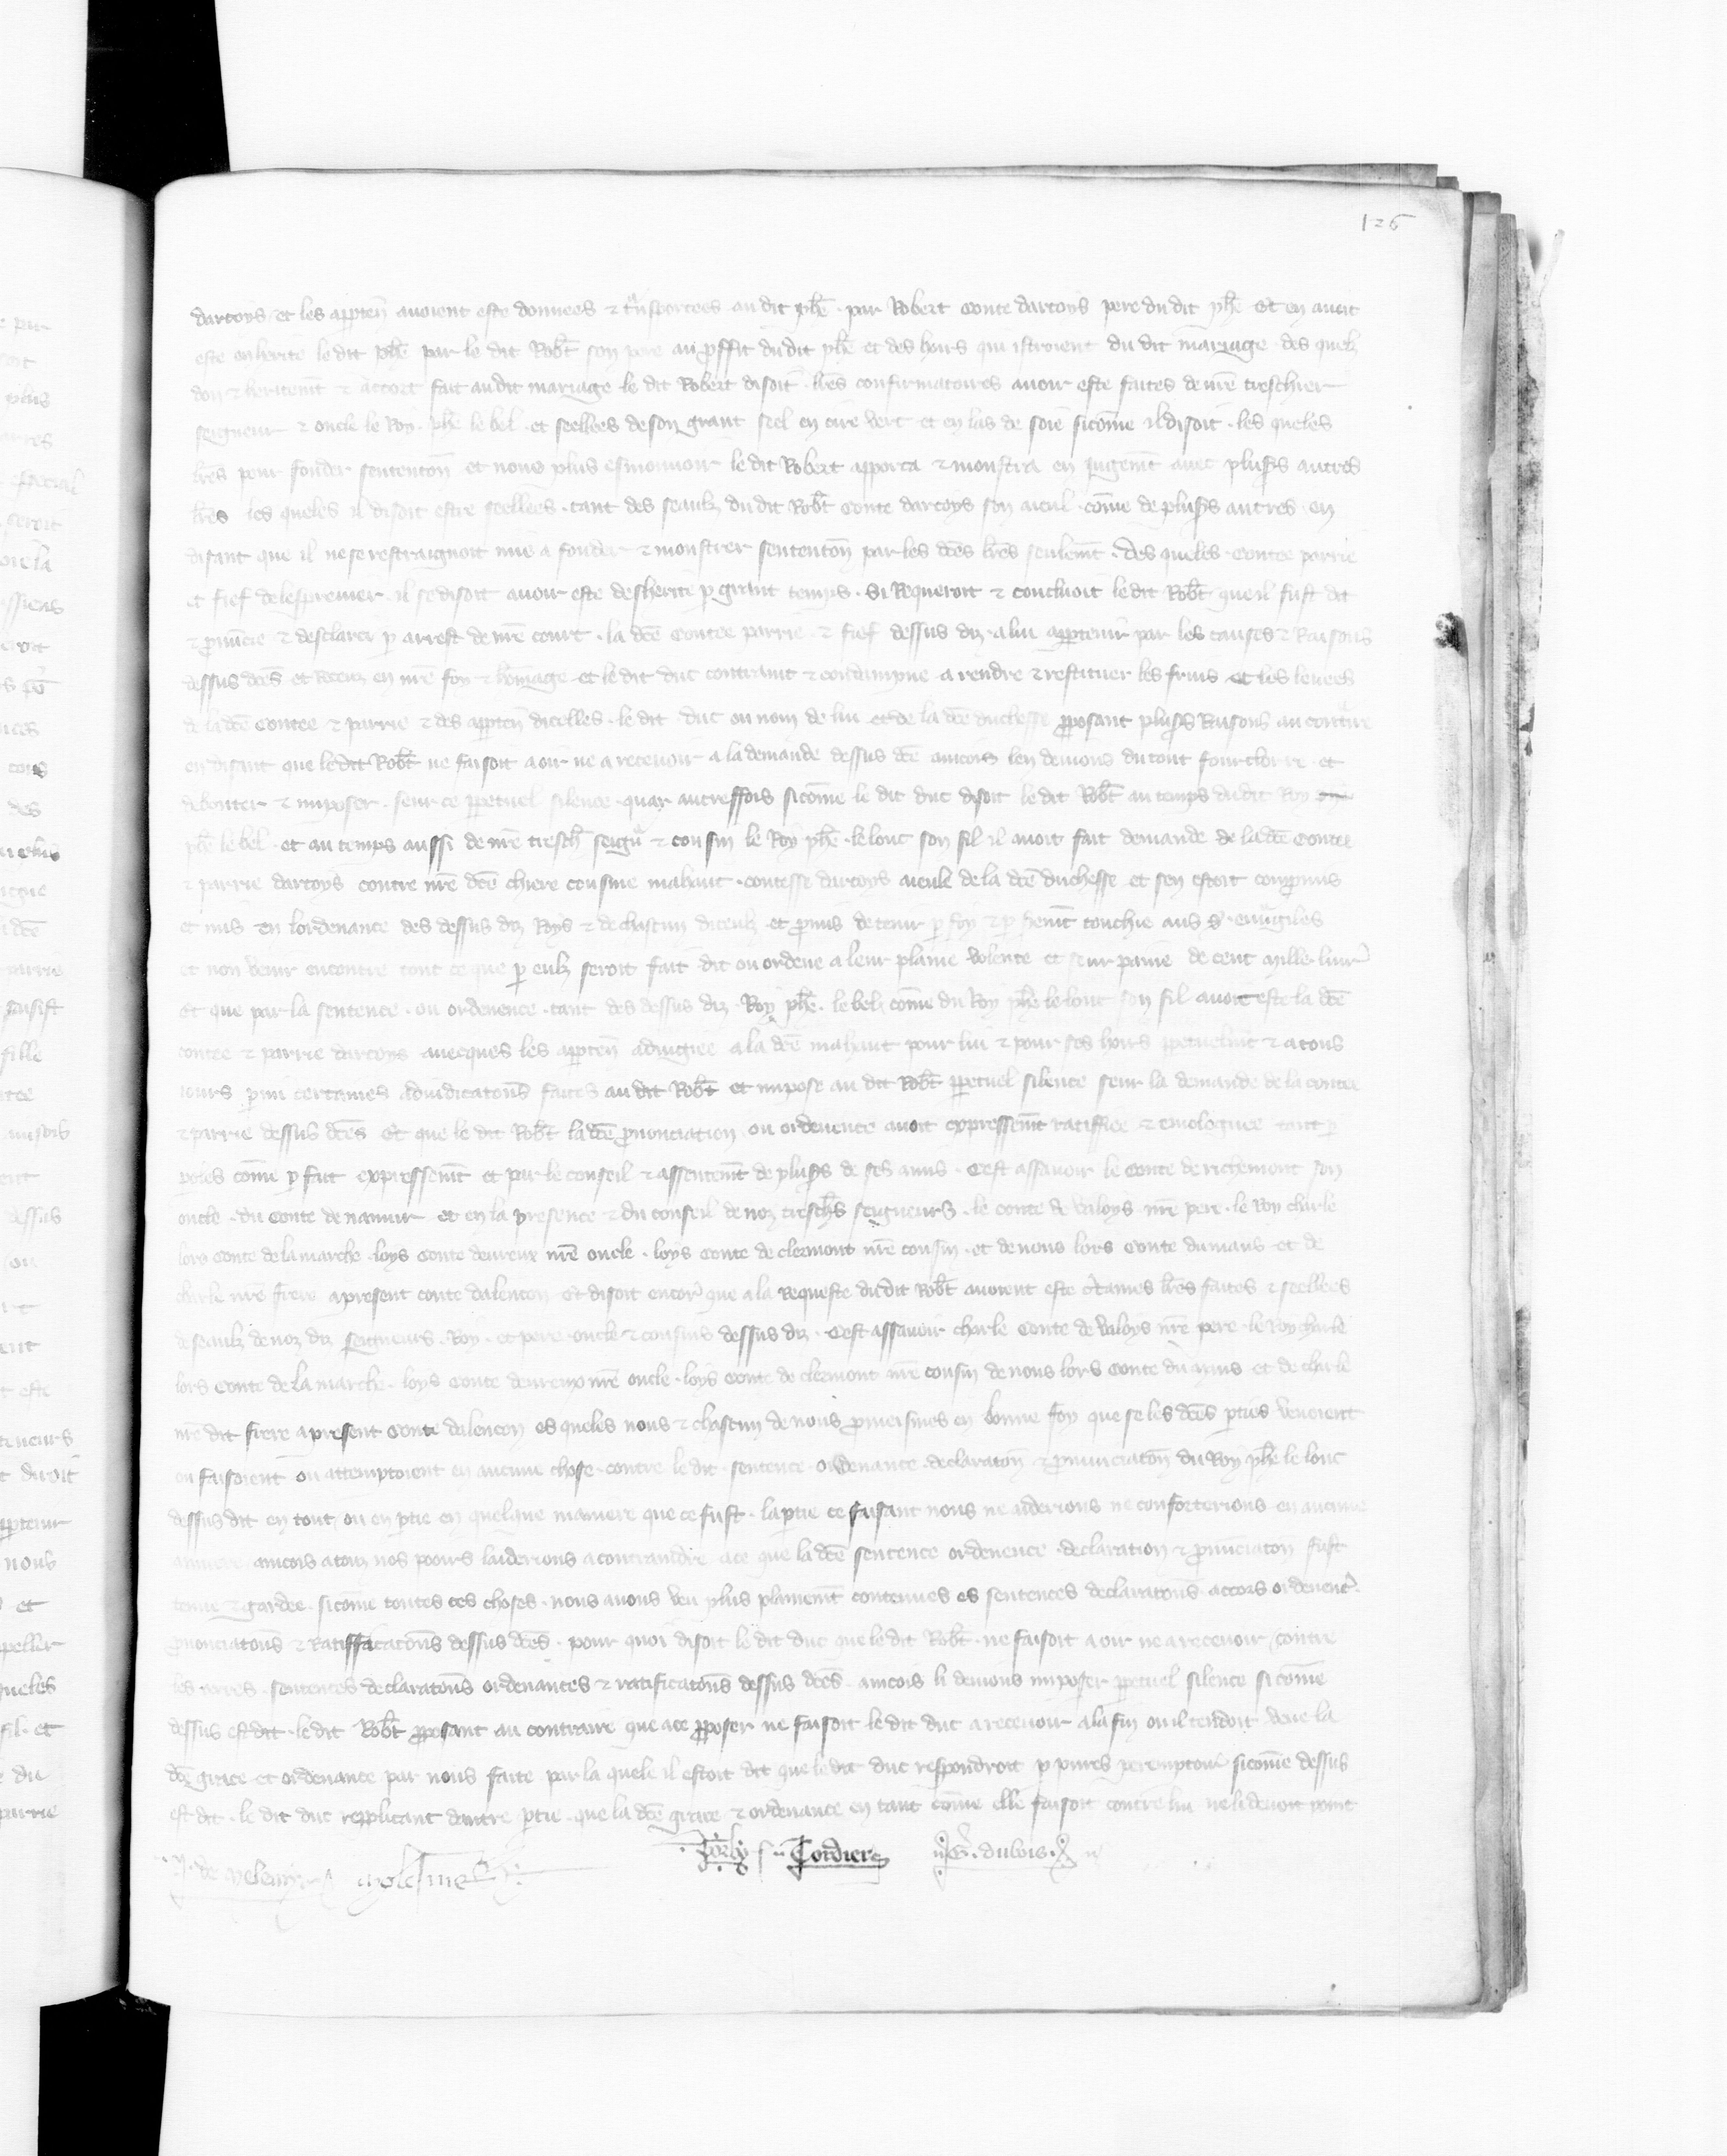 126
dartoys et les appten̄ auoient este donnees & tͣnsportees au dit phē . par Robert Conte dartoys pere du dit phē Et en auoit
este enherite le dit phē par le dit Rob̄t son pere au proffit du dit phē et des hoirs qui istroient du dit mariage des quelz
don & heritem̄t & accort fait au dit mariage le dit Robert disoit lr̄es confirmatoires auoir este faites de nr̄e treschier
seigneur & oncle le Roy phē le bel et seellees de son grant seel en cire vert et en las de soie sicōme il disoit . les queles
lr̄es pour fonder sentencōn et nous plus esmouuoir le dit Robert apporta & monstra en Iugem̄t auec plus̄s autres
lr̄es les queles il disoit estre seellees . tant des seaulz du dit Rob̄t Conte dartoys son aieul . cōme de plus̄s autres en
disant que il ne se restraignoit mie a fonder & monstrer sentencōn par les dc̄es lr̄es seulem̄t . des queles Contee parrie
et fief il se disoit auoir este desherite p grant temps . Si Requeroit & concluoit le dit Rob̄t que il fust dit
& p̄nuncie & desclarei p arrest de nr̄e court . la dc̄e Contee parrie & fief dessus diz a lui apptenir par les causes & Raisons
dessus dc̄es et Receuz en nr̄e foy & hōmage et le dit duc contraint & condampne a rendre & restituer les fruis et les leuees
de la dc̄e Contee & parrie & des appten̄ dicelles . le dit duc ou nom de lui et de la dc̄e duchesse p̄posant plus̄s Raisons au contͣire
en disant que le dit Rob̄t ne faisoit a oir ne a receuoir a la demande dessus dc̄e aincois len deuions du tout fourclorre et
debouter & imposer . seur ce ppetuel silence quar autreffois sicōme le dit duc disoit le dit Rob̄t au temps du dit Roy
phē le bel . et au temps aussi de nr̄e tresch̄ seigñ & cousin le Roy phē . le lonc son fil il auoit fait demande de la dc̄e Contee
& parrie dartoys contre nr̄e dc̄e chiere cousine mahaut . contesse dartoys aieule de la dc̄e duchesse et sen estoit compromis
et mis en lordenance des dessus diz Roys & de chascun diceulz et p̄mis de tenir p foy & p serem̄t touchie aus s̄ . euuͣgiles
et non venir encontre tout ce que p eulz seroit fait dit ou ordene a leur plaine volente et seur paine de cent mille liur̄
Et que par la sentence . ou ordenence . tant des dessus diz . Roy phē . le bel cōme du Roy phē le lonc son fil auoit este la dc̄e
contee & parrie dartoys auecques les appten̄ adiugiee a la dc̄e mahaut pour lui & pour ses hoirs ppetuelm̄t & a tous
iours pmi certaines adiudicatōns faites au dit Rob̄t et impose au dit Rob̄t ppetuel silence seur la demande de la contee
& parrie dessus dc̄es Et que le dit Rob̄t la dc̄e p̄nonciation ou ordenence auoit expressem̄t ratiffiee & emologuee tant p
poles cōme p fait expressem̄t et par le conseil & assentem̄t de plus̄s de ses amis . Cest assauoir le Conte de richemont son
oncle . du Conte de namur et en la presence & du conseil de noz tresch̄s seigneurs . le conte de valoys nr̄e pere . le Roy charle
lors Conte de la marche . loys Conte deureux nr̄e oncle . loys Conte de clermont nr̄e cousin . et de nous lors Conte du mans et de
charle nr̄e frere apresent conte dalencon Et disoit encor̄ que a la Requeste du dit Rob̄t auoient este c̄taines lr̄es faites & seellees
de seaulz de noz diz seigneurs . Roy . et pere . oncle & cousins dessus diz . Cest assauoir charle Conte de valoys nr̄e pere . le Roy charle
lors Conte de la marche . loys Conte deureux nr̄e oncle . loys Conte de clermont nr̄e cousin de nous lors Conte du mans et de charle
nr̄e dit frere apresent Conte dalencon es queles nous & chascun de nous p̄meismes en bonne foy que se les dc̄es pties venoient
ou faisoient ou attemptoient en aucune chose . contre le dit . sentence ordenance declaratōn & p̄nunciatōn du Roy phē le lonc
dessus dit en tout ou en ptie en quelque maniere que ce fust . la ptie ce faisant nous ne aiderions ne conforterions en aucune
maniere aincois a touz nos pooirs laiderions a contraindre a ce que la dc̄e sentence ordenence . declaration & p̄nunciatōn fust
tenue & gardee . sicōme toutes ces choses . nous auons veu plus plainem̄t contenues es sentences declaratōns accors ordenenc̄
p̄nonciatōns & ratiffiicatōns dessus dc̄es . pour quoi disoit le dit duc que le dit Rob̄t . ne faisoit a oir ne a receuoir contre
les . sentences declaratōns ordenances & ratificatōns dessus dc̄es aincois li deuions imposer ppetuel silence si cōme
dessus est dit . le dit Rob̄t p̄posant au contraire que a ce p̄poser ne faisoit le dit duc a receuoir a la fin ou il tendoit veue la
dc̄e grace et ordenance par nous faite par la quele il estoit dit que le dit duc respondroit p peremptoir̄ sicōme dessus
est dit . le dit duc repplicant dautre ptie . que la dc̄e grace & ordenance en tant cōme elle faisoit contre lui ne li deuoit point
Cordier G . dubois